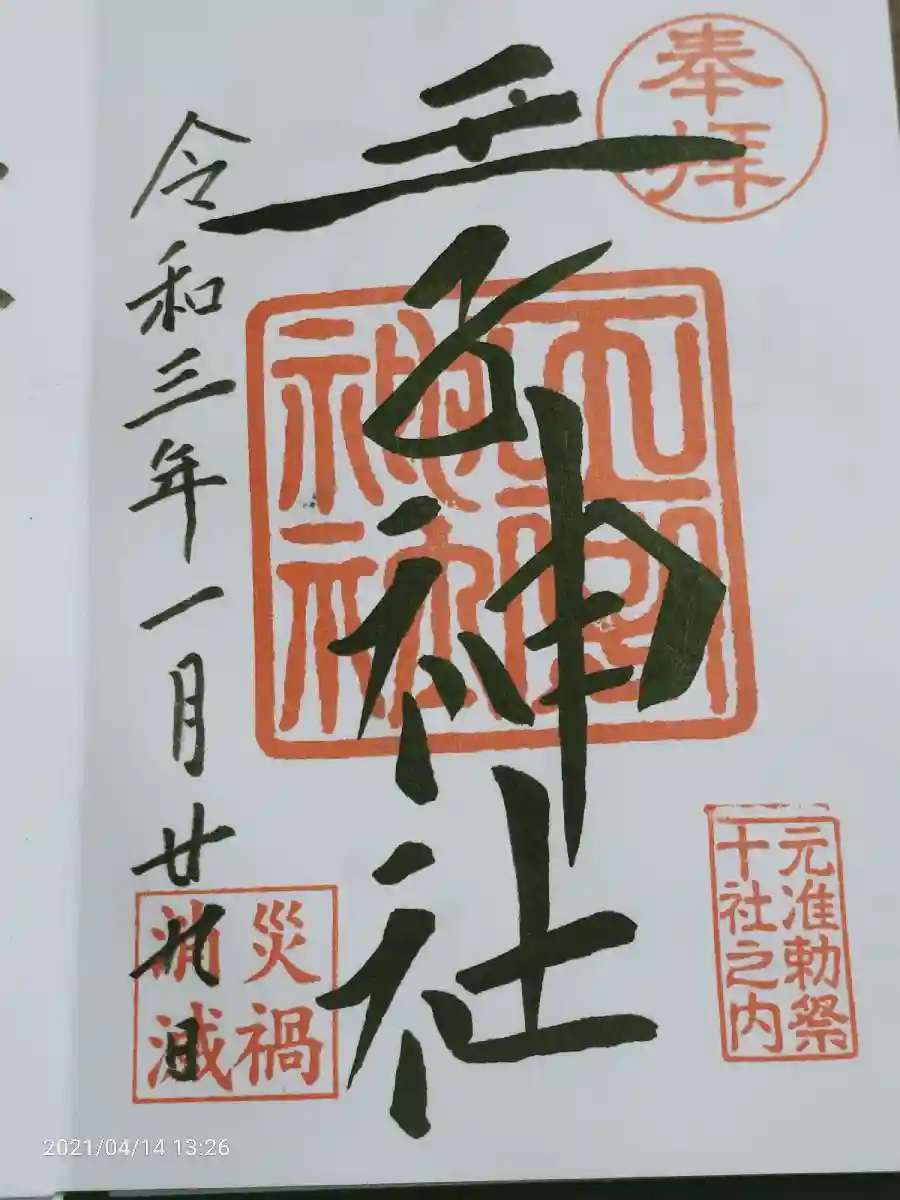 奉拝
元准勅祭
十社之内
王子神社
災禍
消滅
令和三年一月廿九日
2021/04/14 13:26